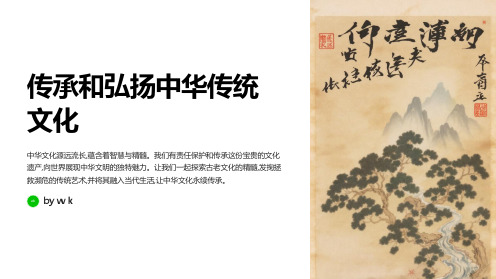 传承和弘扬中华传统
文化
中华文化源远流长,蕴含着智慧与精髓。我们有责任保护和传承这份宝贵的文化
遗产,向世界展现中华文明的独特魅力。让我们一起探索古老文化的精髓,发掘拯
救濒危的传统艺术,并将其融入当代生活,让中华文化永续传承。
by vv k